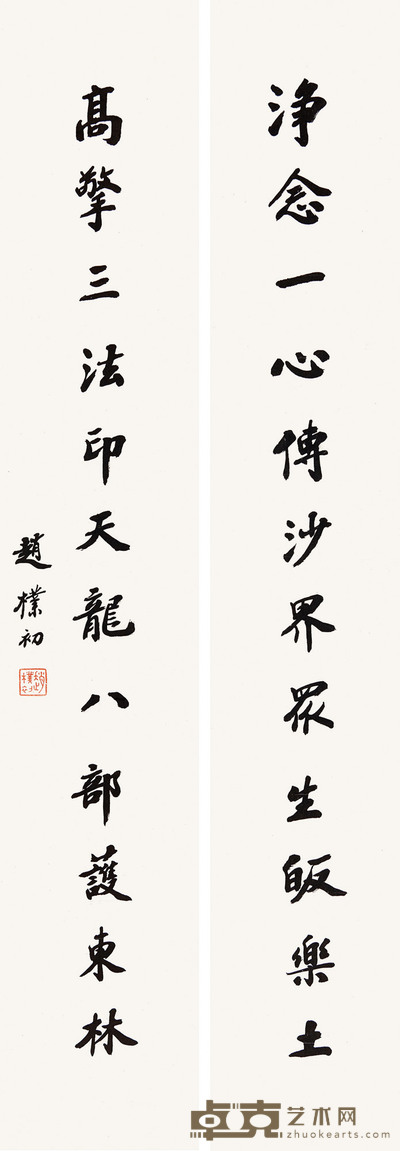 淨念一心傳沙界眾生皈樂土
高擎三法印天龍八部護東林
趙樸初
趙樸初
卓克艺术网
zhuokearts.com